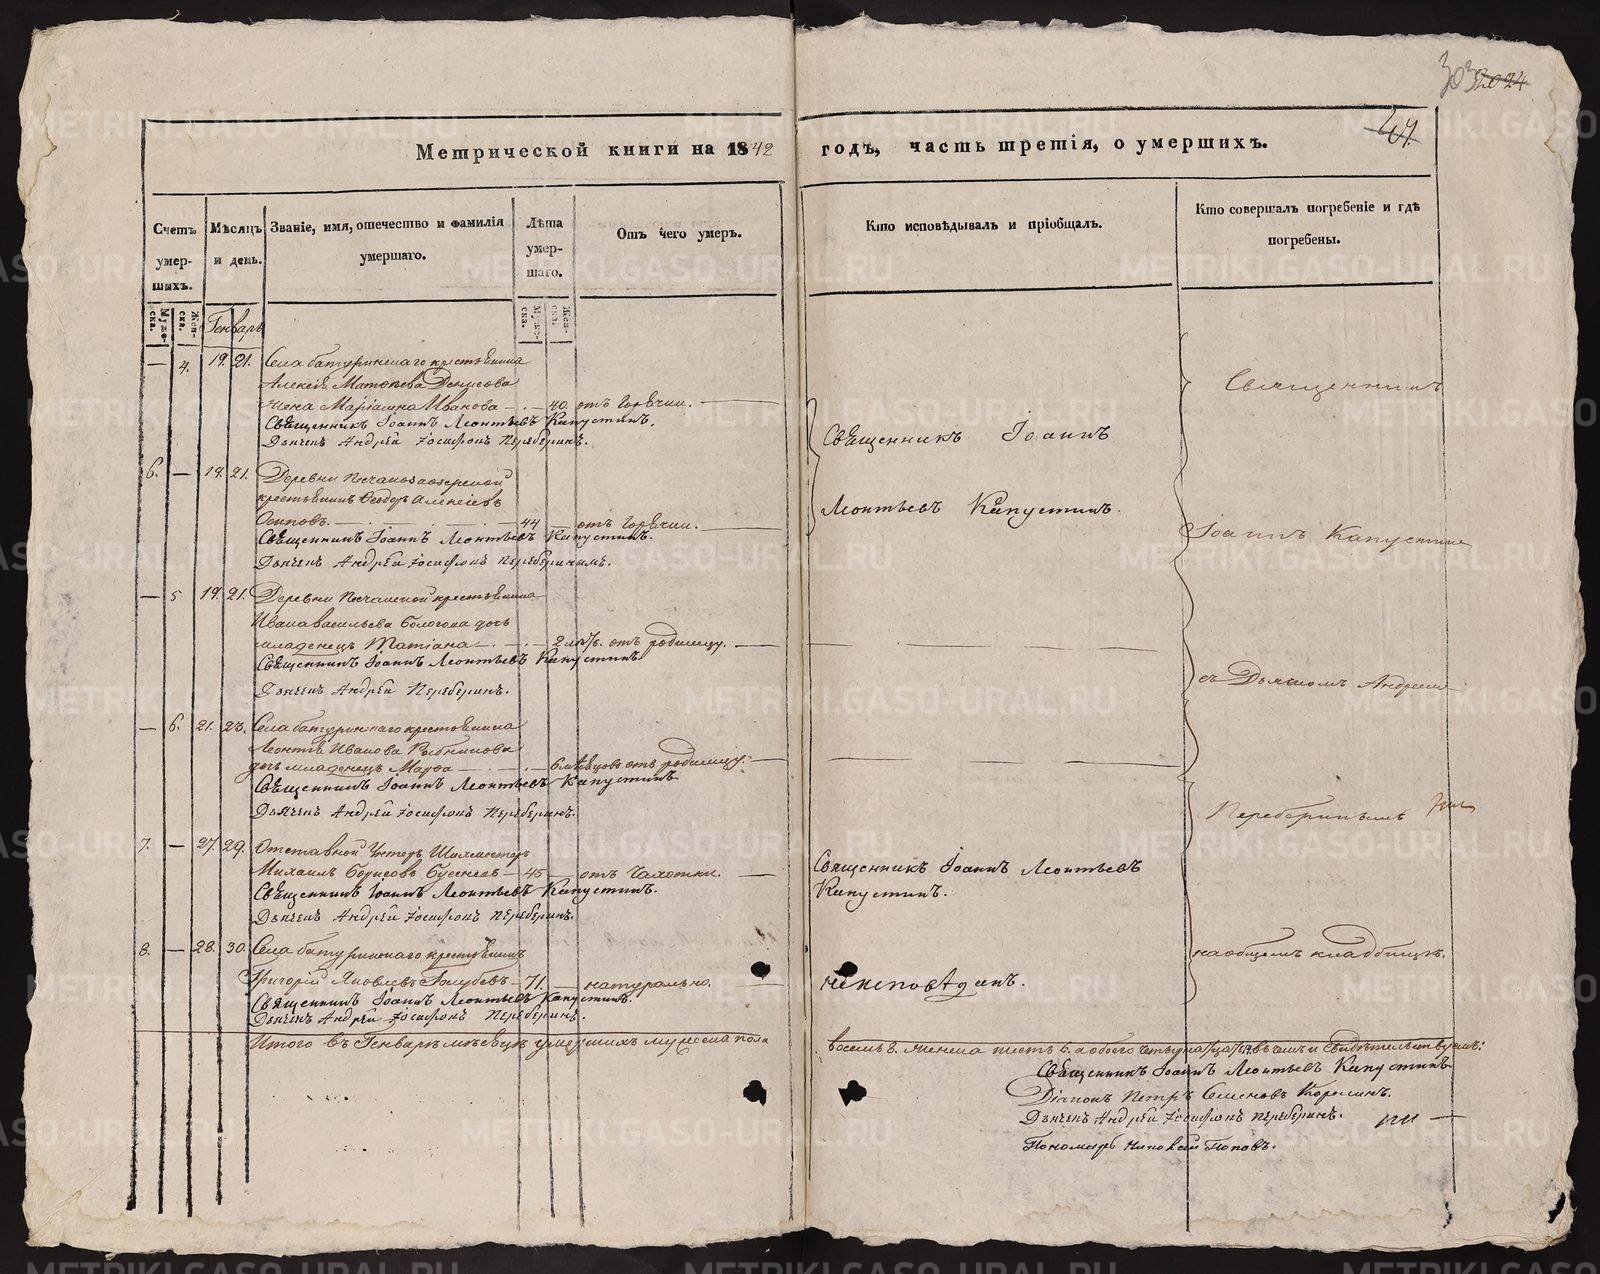 303 2024
Метрической книги на 1842 годъ, часть третія, о умершихъ.
Счетъ умер- шыхъ.
Муже- ска.
Жен- ска.
Мѣсяцъ и день.
Званіе, имя, отечество и фамилія умершаго.
Лѣта умер- шаго.
Муже- ска.
Жен- ска.
Отъ чего умеръ.
Кто исповѣдывалъ и пріобщалъ.
Кто совершалъ погребеніе и гдѣ погребены.
Генварь
— 4. 19. 21. Села батуринскаго крестьянина
Алексія Матѳѣева Денисова
жена Маріамна Иванова — 40. отъ горячки.
Священникъ Іоаннъ Леонтьевъ Капустинъ.
Дьячекъ Андрей Іосифовъ Переберинъ.
6. — 19. 21. Деревни
крестьянинъ Ѳеодоръ Алексіевъ
Осиповъ. — 44 — отъ горячки.
Священникъ Іоаннъ Леонтьевъ Капустинъ.
Дьячекъ Андрей Іосифовъ
Священникъ Іоаннъ
Леонтьевъ Капустинъ.
— 5 19. 21. Деревни крестьянина
Ивана Васильева дочь
младенецъ Татіана — 2 отъ родимцу.
Священникъ Іоаннъ Леонтьевъ Капустинъ
Дьячекъ Андрей Переберинъ.
— 6. 21. 23. Села батуринскаго крестьянина
Леонтія Иванова
дочь младенецъ Марѳа — 6 мѣсяцовъ отъ родимцу.
Священникъ Іоаннъ Леонтьевъ Капустинъ
Дьячекъ Андрей Іосифовъ Переберинъ.
7. — 27. 29. Отставной Унтеръ Шихмейстеръ
Михаилъ Борисовъ — 45 — отъ чахотки.
Священникъ Іоаннъ Леонтьевъ Капустинъ.
Дьячекъ Андрей Іосифовъ Переберинъ.
Священникъ Іоаннъ Леонтьевъ
Капустинъ.
8. — 28. 30. Села батуринскаго крестьянинъ
Григорій Яковлевъ Голубевъ — 71. — натурально.
Священникъ Іоаннъ Леонтьевъ Капустинъ.
Дьячекъ Андрей Іосифовъ Переберинъ.
неисповѣданъ.
Священникъ
Іоаннъ Капустинъ
съ Дьячкомъ Андреемъ
Переберинымъ
на общемъ кладбищѣ.
Итого въ Генварѣ мѣсяцѣ умершихъ мужеска пола
восемь 8. женска шесть 6. а обоего четырнадцать 14. въ чемъ и свидѣтельствуемъ:
Священникъ Іоаннъ Леонтьевъ Капустинъ
Діаконъ Петръ Семеновъ
Дьячекъ Андрей Іосифовъ Переберинъ.
Пономарь Поповъ.
METRIKI.GASO-URAL.RU